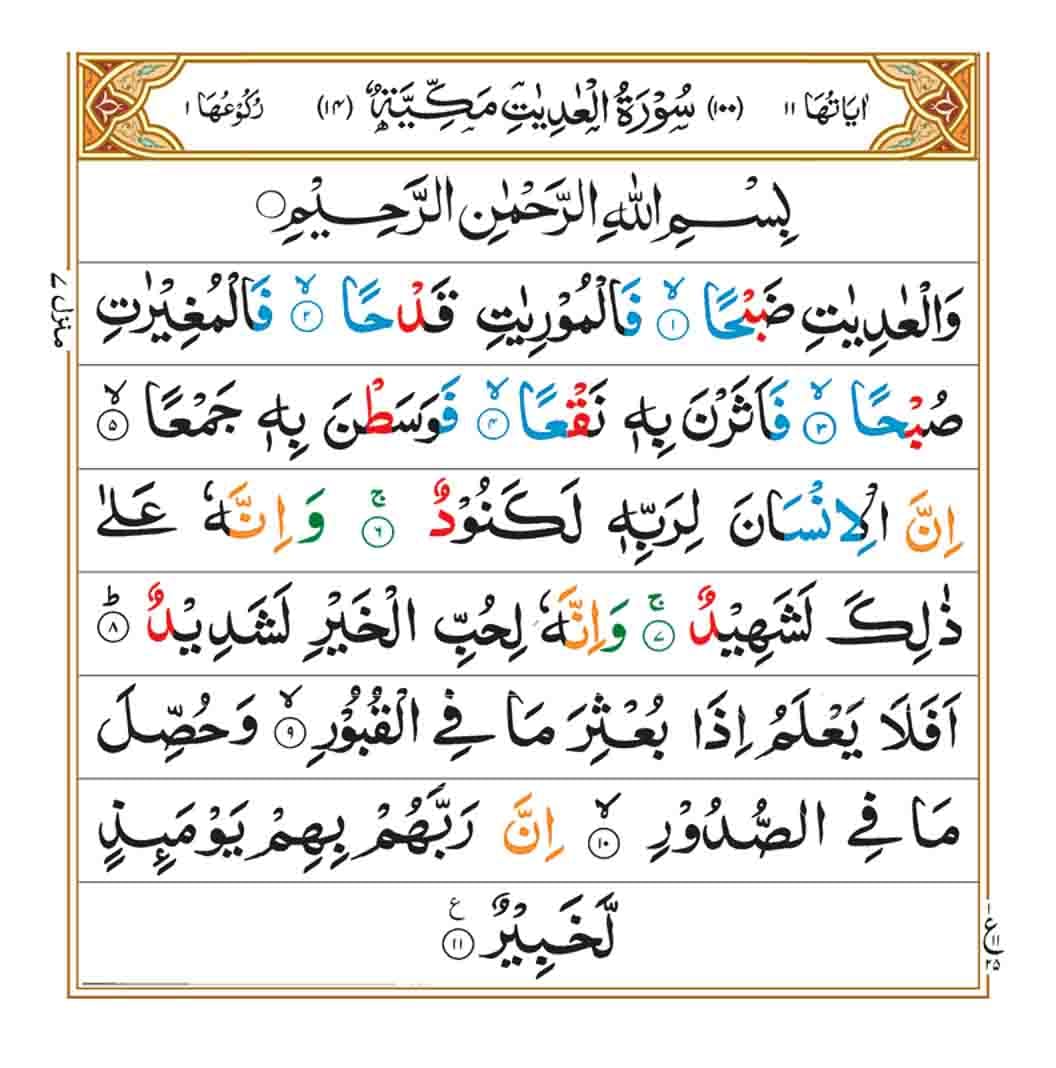 اٰيَاتُهَا ١١ (١٠٠) سُوْرَةُ الْعٰدِيٰتِ مَكِّيَّةٌ (١٤) رُكُوْعُهَا ١
بِسْمِ اللّٰهِ الرَّحْمٰنِ الرَّحِيْمِ ○
وَالْعٰدِيٰتِ ضَبْحًا ۙ‏﴿۱﴾ فَالْمُوْرِيٰتِ قَدْحًا ۙ‏﴿۲﴾ فَالْمُغِيْرٰتِ
صُبْحًا ۙ‏﴿۳﴾ فَاَثَرْنَ بِهٖ نَقْعًا ۙ‏﴿۴﴾ فَوَسَطْنَ بِهٖ جَمْعًا ۙ‏﴿۵﴾
اِنَّ الْاِنْسَانَ لِرَبِّهٖ لَكَنُوْدٌ ۚ‏﴿۶﴾ وَاِنَّهٗ عَلٰى
ذٰلِكَ لَشَهِيْدٌ ۚ‏﴿۷﴾ وَاِنَّهٗ لِحُبِّ الْخَيْرِ لَشَدِيْدٌ ؕ‏﴿۸﴾
اَفَلَا يَعْلَمُ اِذَا بُعْثِرَ مَا فِى الْقُبُوْرِ ۙ‏﴿۹﴾ وَحُصِّلَ
مَا فِى الصُّدُوْرِ ۙ‏﴿۱۰﴾ اِنَّ رَبَّهُمْ بِهِمْ يَوْمَئِذٍ
لَّخَبِيْرٌ ﴿۱۱﴾ ع
منزل ۷
ع ۱ ۱۱ ۲۵